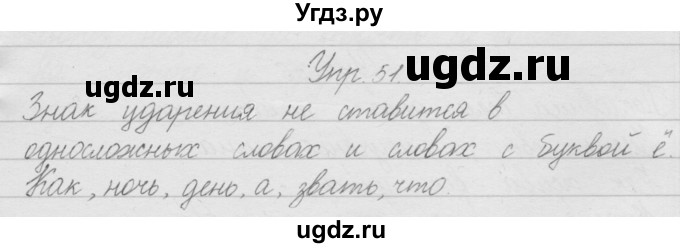 Угдз.ру
ugdz.ru
Упр. 51
ugdz.ru
Знак ударения не ставится в
односложных словах и словах с буквой ё.
Как, ночь, день, а, звать, что.
ugdz.ru
ugdz.ru
ugdz.ru